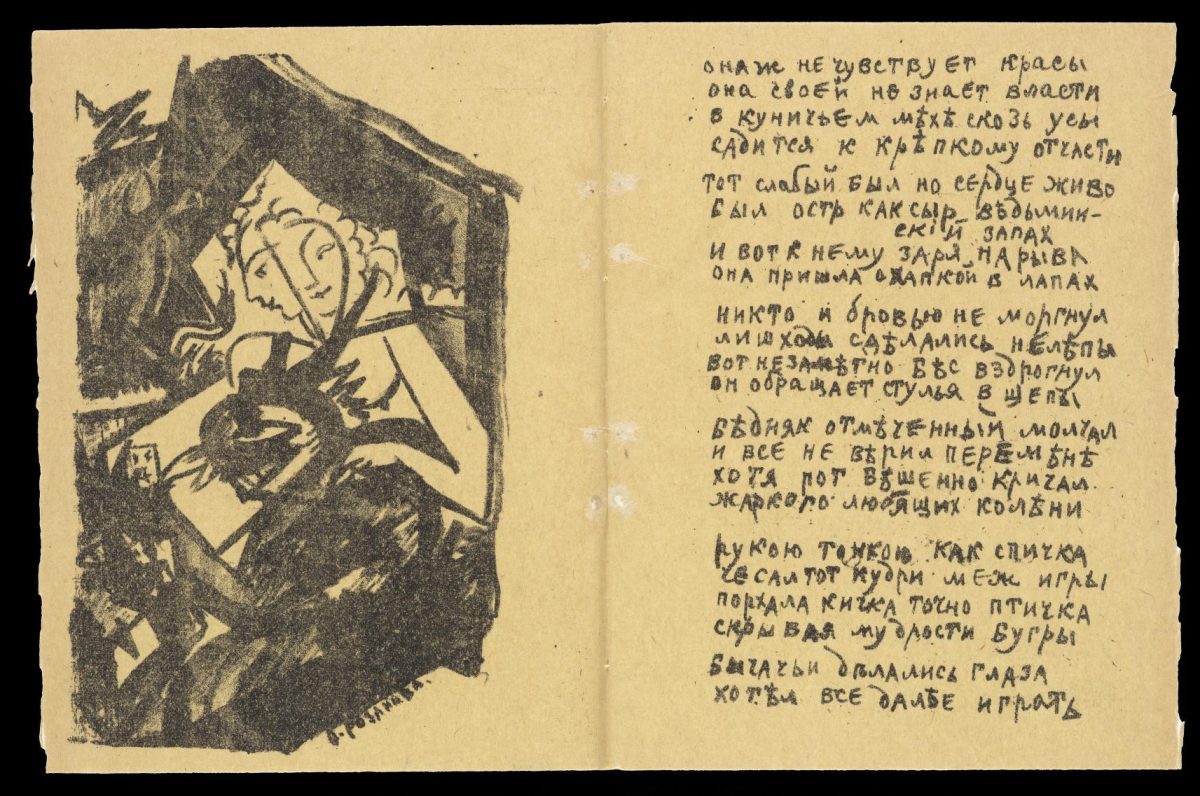 О. РОЗАНОВА.
она ж не чувствует красы
она своей не знает власти
в куничьем мѣхѣ скозь усы
садится к крѣпкому отчасти
тот слабый был но сердце живо
был остр как сыр вѣдьмин-
скій запах
и вот к нему заря нарыва
она пришла охапкой в лапах
никто и бровью не моргнул
лиш ходы сдѣлались нелѣпы
вот незамѣтно бѣс вздрогнул
он обращает стулья в щепы
бѣдняк отмѣченный молчал
и все не вѣрил перемѣнѣ
хотя рот бѣшенно кричал
жаркого любящих колѣни
рукою тонкою как спичка
чесал тот кудри меж игры
порхала кичка точно птичка
скрывая мудрости бугры
бычачьи дѣлались глаза
хотѣл все далѣе играть